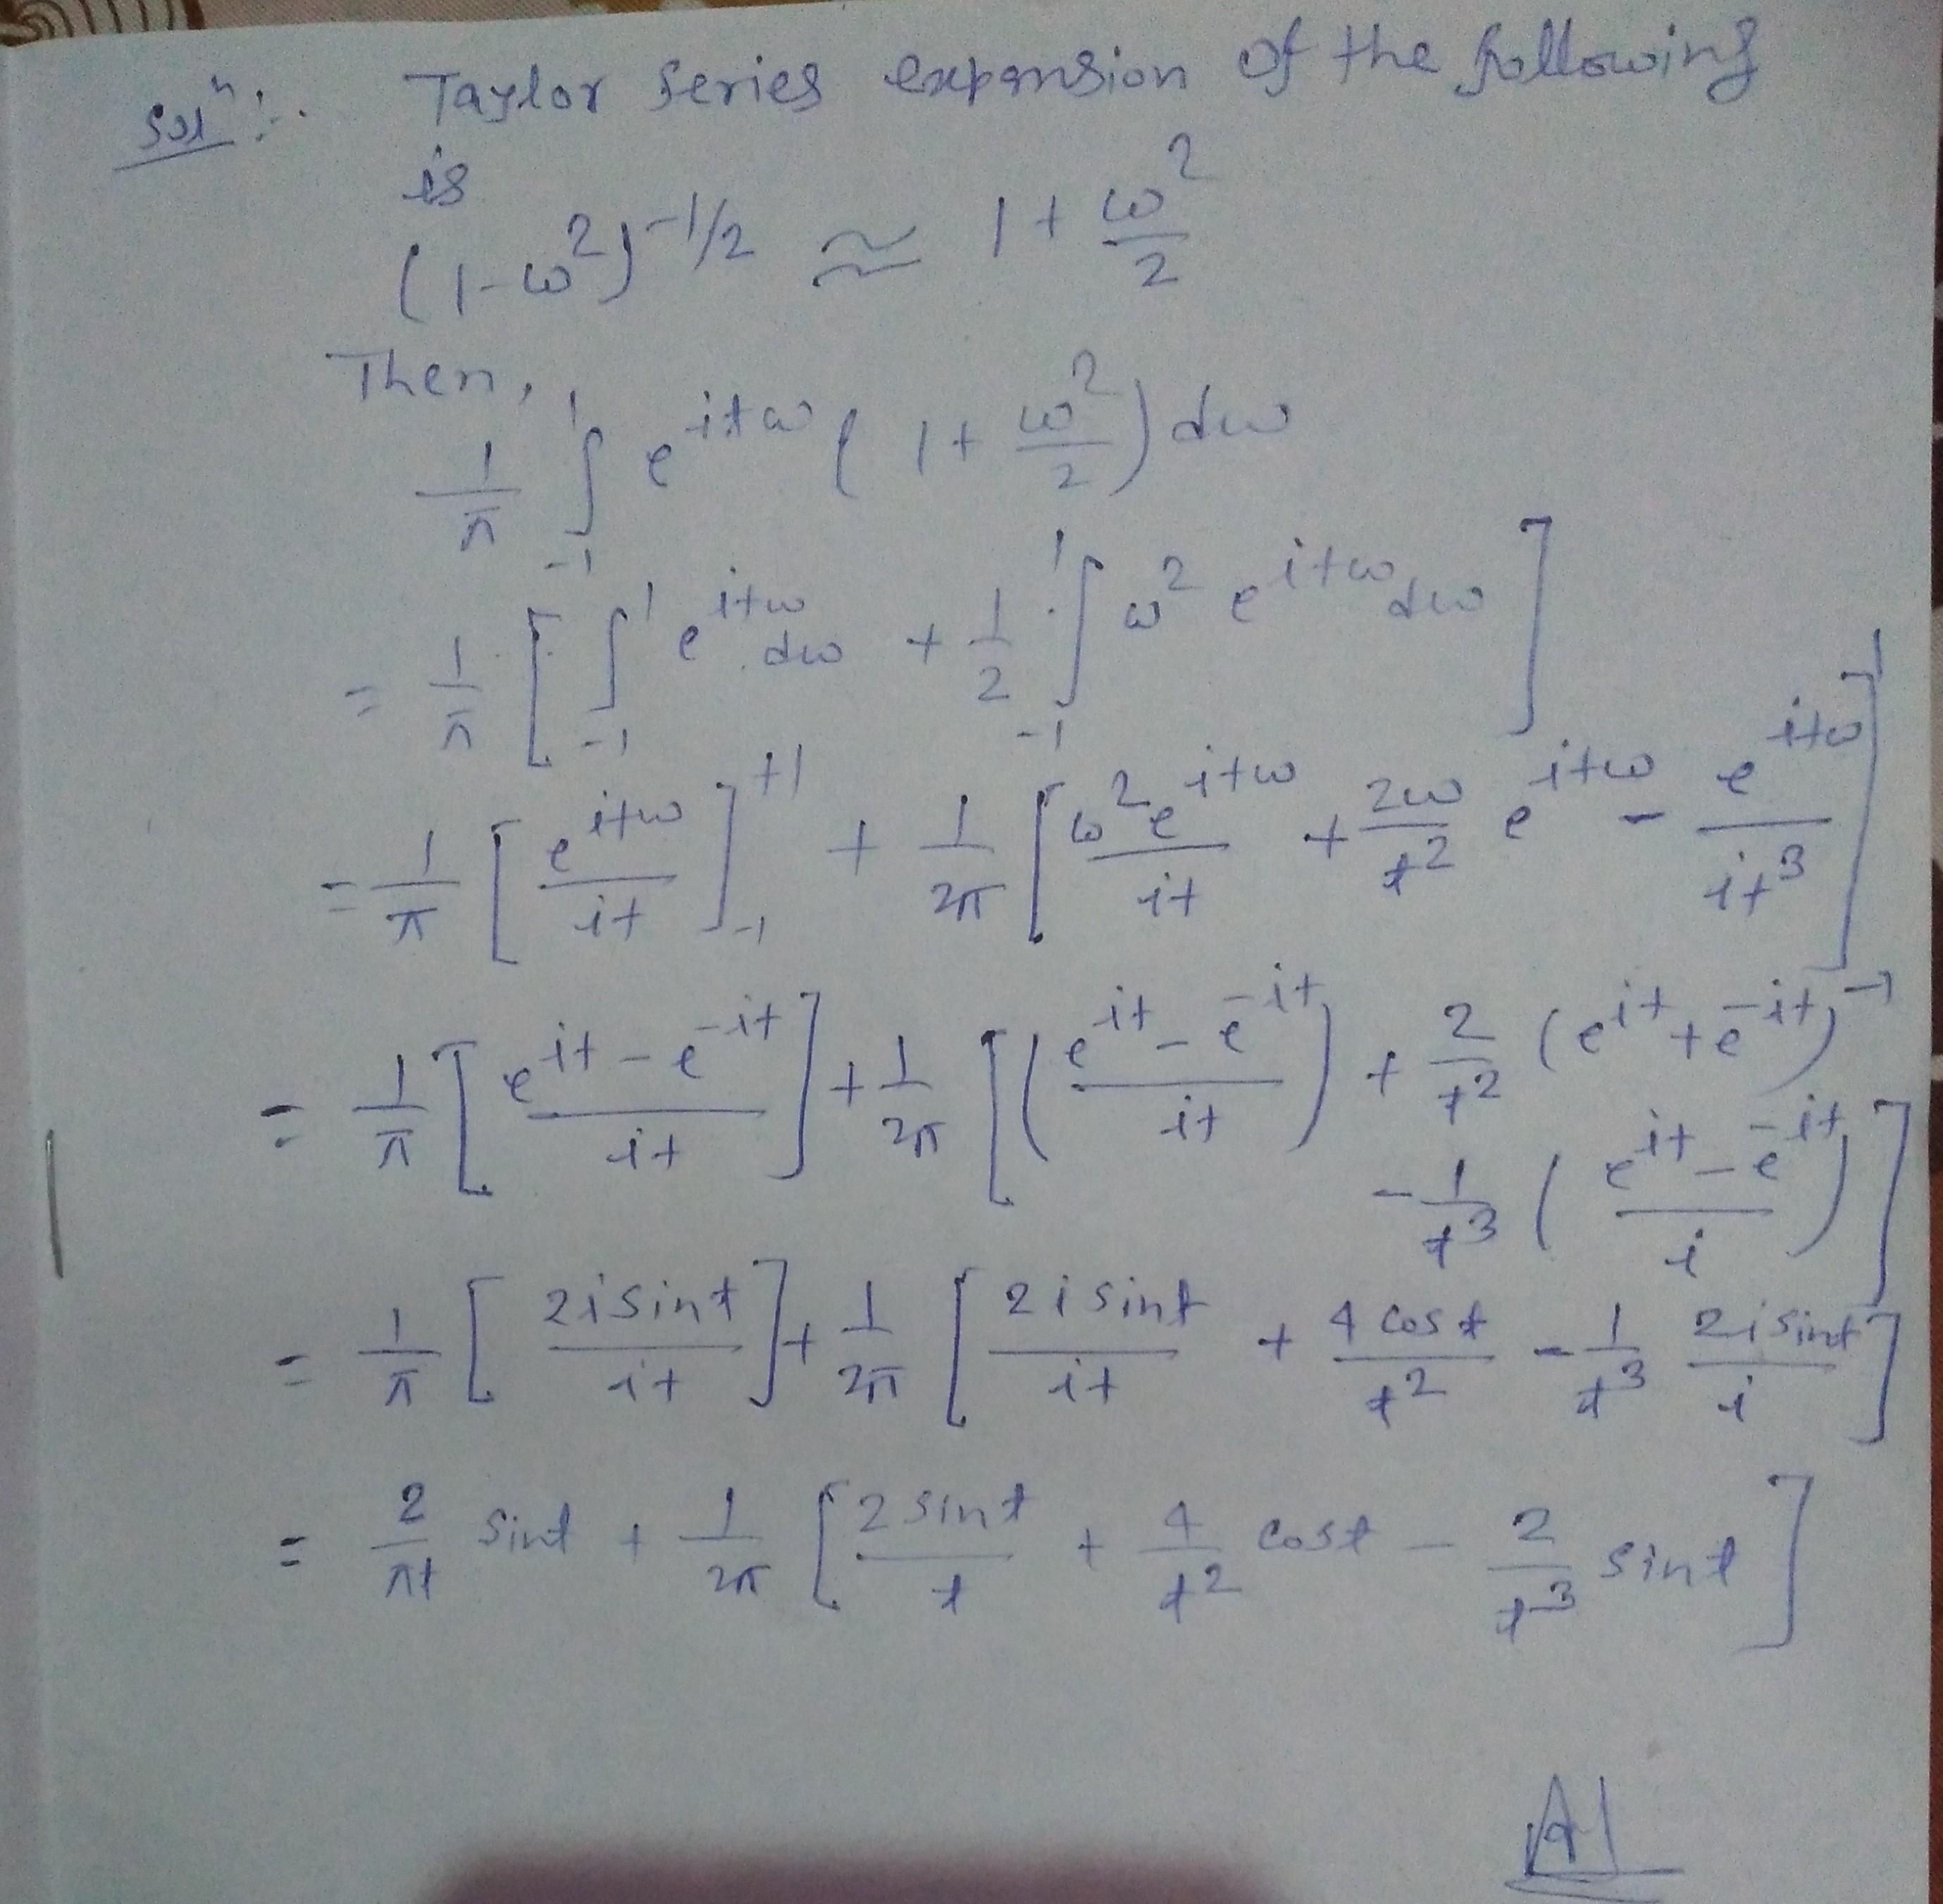 Solⁿ:- Taylor series expansion of the following
is
(1-ω²)^{-1/2} ≈ 1 + ω²/2
Then,
1/π ∫_{-1}^{1} e^{itω} (1 + ω²/2) dω
= 1/π [ ∫_{-1}^{1} e^{itω} dω + 1/2 ∫_{-1}^{1} ω² e^{itω} dω ]
= 1/π [ e^{itω}/it ]_{-1}^{+1} + 1/2π [ ω² e^{itω}/it + 2ω/t² e^{itω} - e^{itω}/it³ ]_{-1}^{1}
= 1/π [ (e^{it} - e^{-it})/it ] + 1/2π [ ( (e^{it} - e^{-it})/it ) + 2/t² (e^{it} + e^{-it})
- 1/t³ ( (e^{it} - e^{-it})/i ) ]
= 1/π [ 2i sint/it ] + 1/2π [ 2i sint/it + 4 cost/t² - 1/t³ 2i sint/i ]
= 2/πt sint + 1/2π [ 2 sint/t + 4/t² cost - 2/t³ sint ]